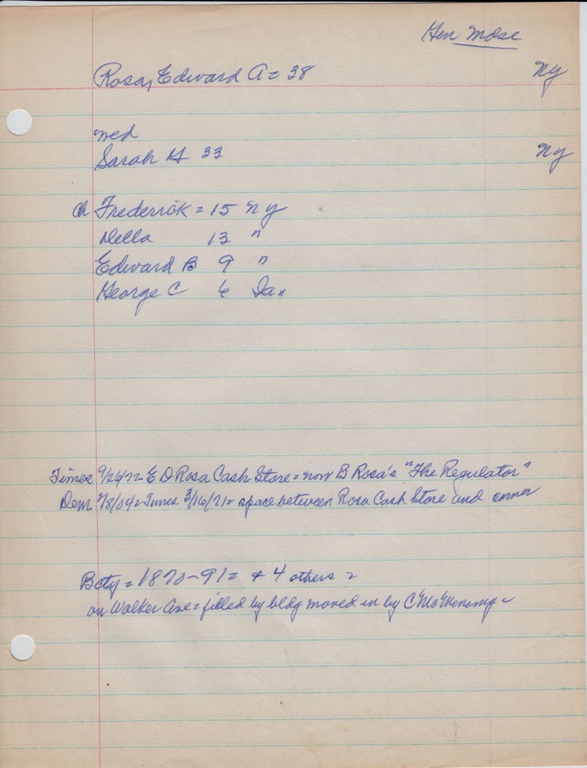 Gen Mdse
Rosa, Edward A = 38 Ny
wed
Sarah H 33 Ny
ch Frederick = 15 Ny
Della 13 "
Edward B 9 "
George C 6 Ia,,
Times 9/26/72 = E D Rosa Cash Store = now B Rosa's "The Regulator"
Dem 7/8/04 = Times 3/16/71 = space between Rosa Cash Store and corner
Bcty = 1870-91 = + 4 others =
on Walker Ave = filled by bldg moved in by C